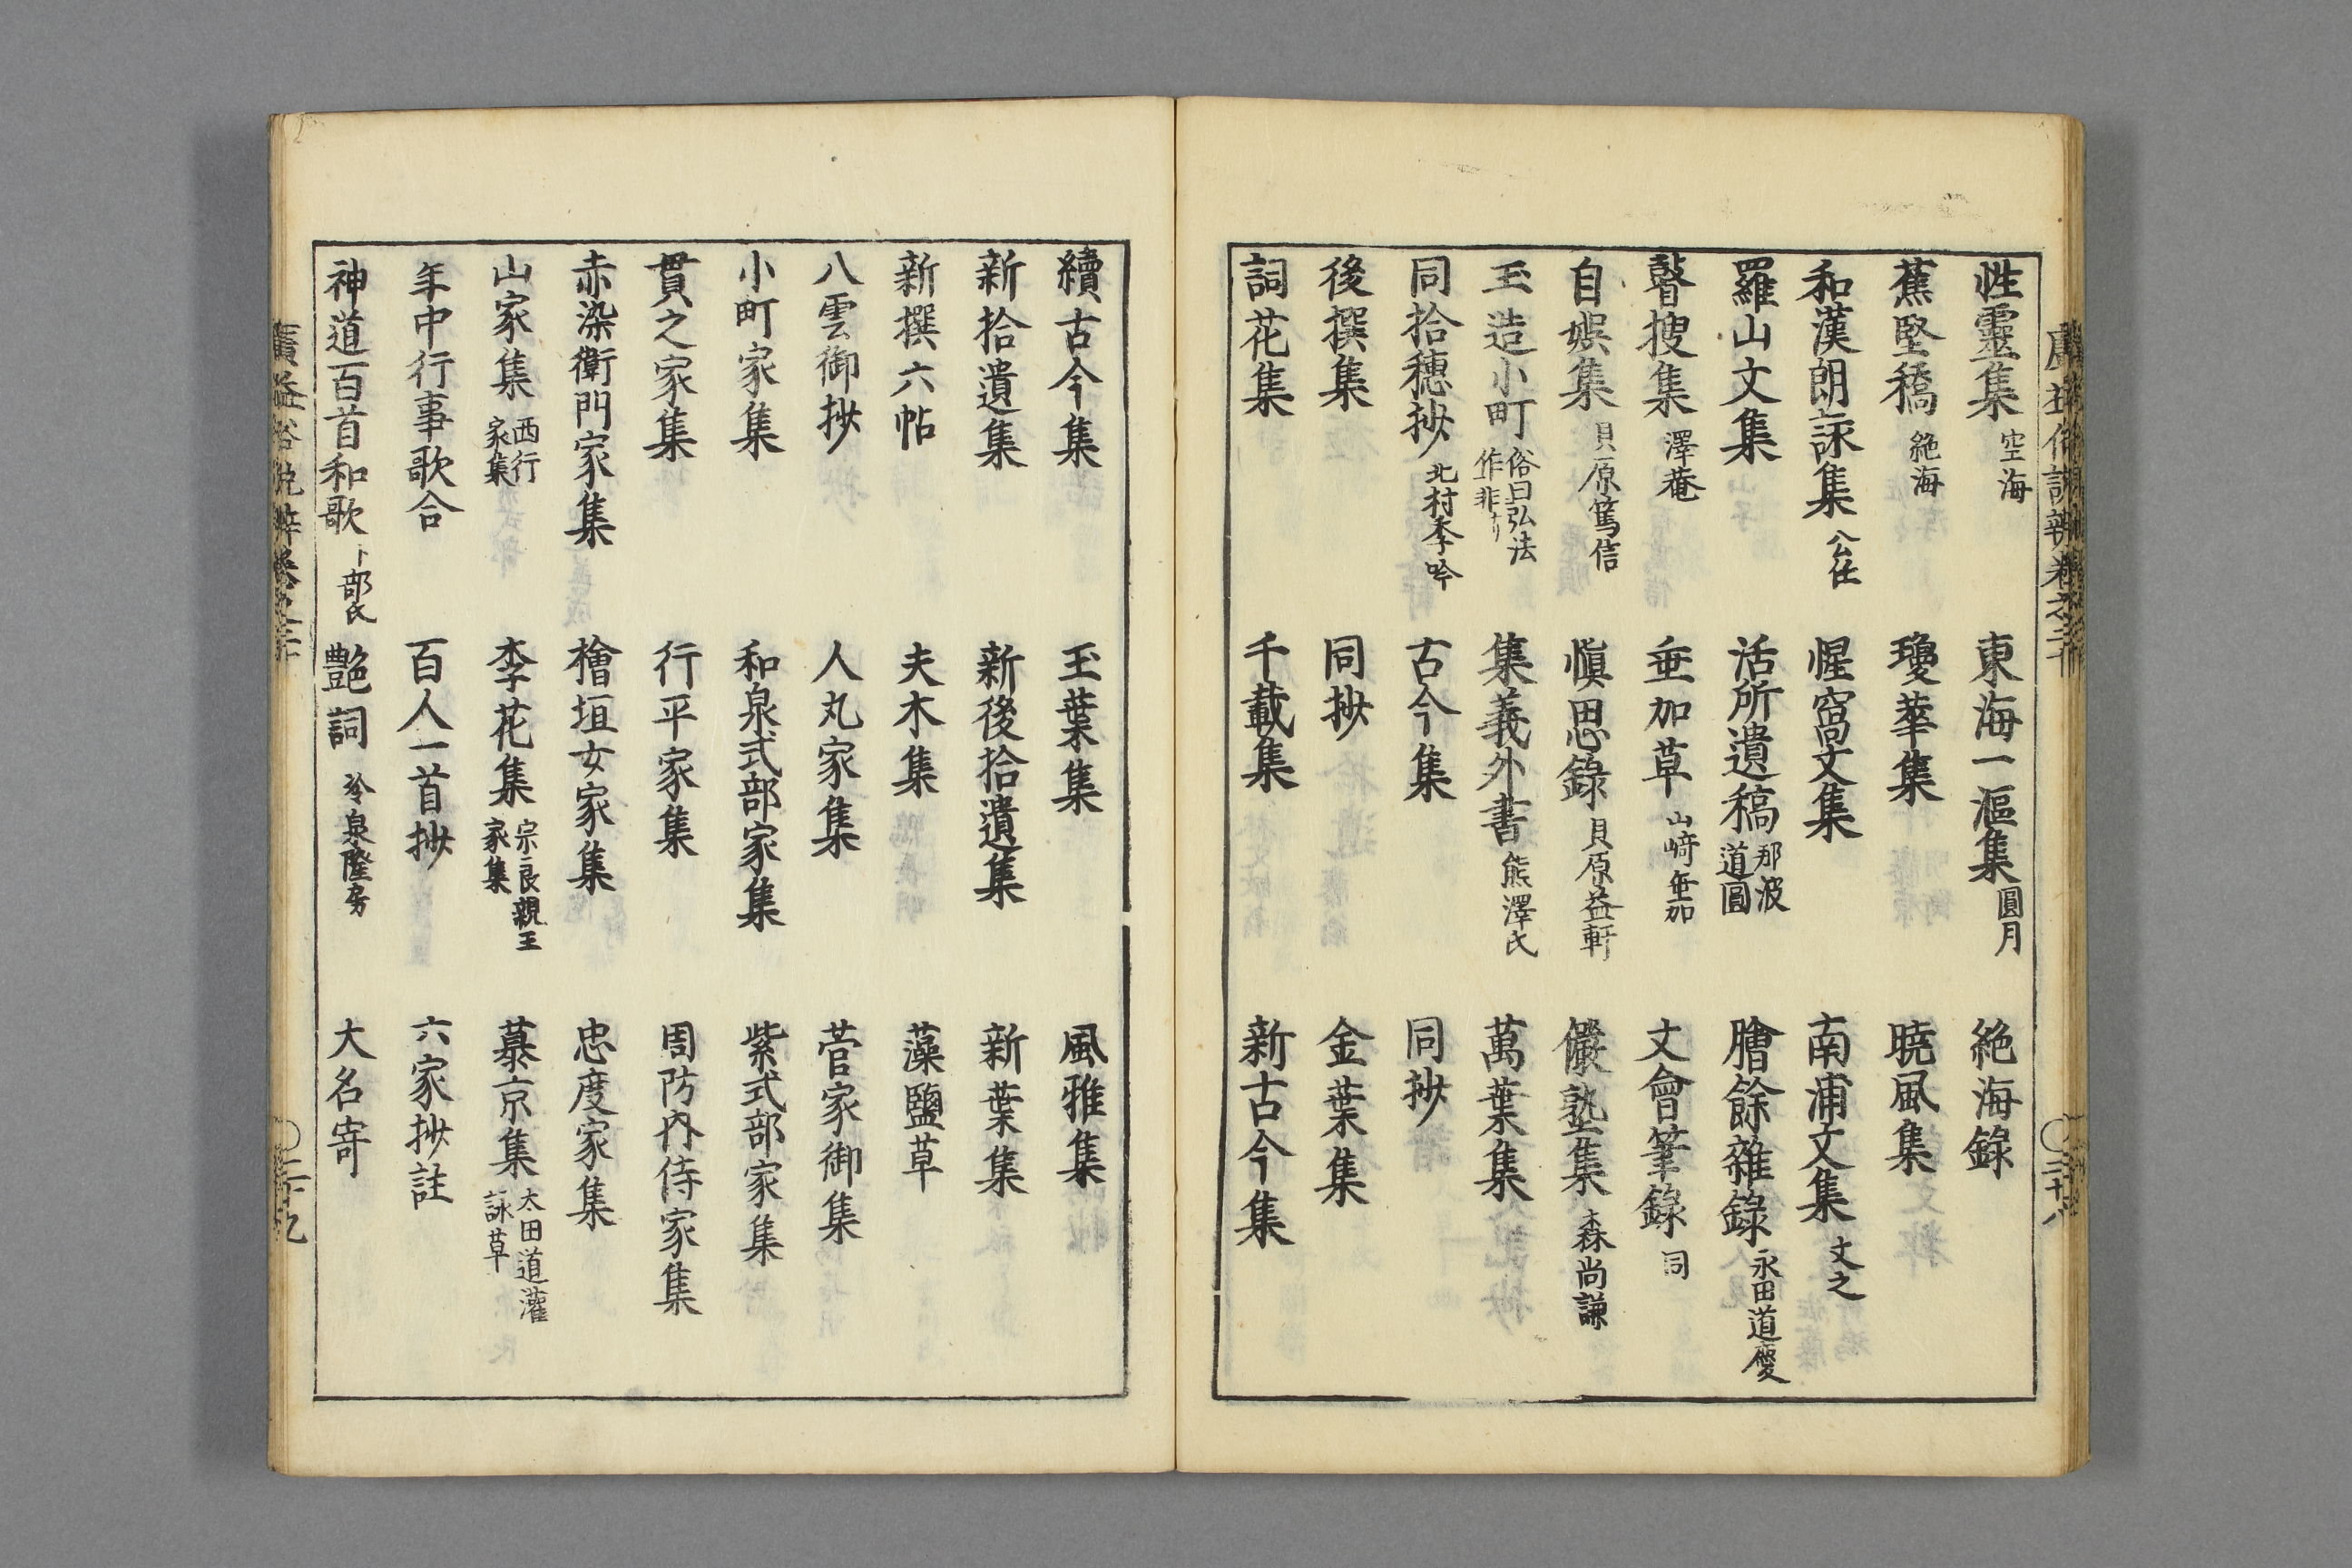 性靈集 空海 東海一漚集 圓月 絶海錄
蕉堅稿 絶海 瓊華集 曉風集
和漢朗詠集 公任 惺窩文集 南浦文集 文之
羅山文集 活所遺稿 那波道圓 膾餘雜錄 永田道慶
瞽搜集 澤菴 垂加草 山﨑垂加 文會筆錄 同
自娯集 貝原篤信 愼思錄 貝原益軒 儼塾集 森尚謙
玉造小町 俗曰弘法作非ナリ 集義外書 熊澤氏 萬葉集
同拾穗抄 北村季吟 古今集 同抄
後撰集 同抄 金葉集
詞花集 千載集 新古今集
續古今集 玉葉集 風雅集
新拾遺集 新後拾遺集 新葉集
新撰六帖 夫木集 藻鹽草
八雲御抄 人丸家集 菅家御集
小町家集 和泉式部家集 紫式部家集
貫之家集 行平家集 周防内侍家集
赤染衛門家集 檜垣女家集 忠度家集
山家集 西行家集 李花集 宗良親王家集 慕京集 太田道灌詠草
年中行事歌合 百人一首抄 六家抄註
神道百首和歌 卜部氏 艶詞 冷泉隆房 大名寄